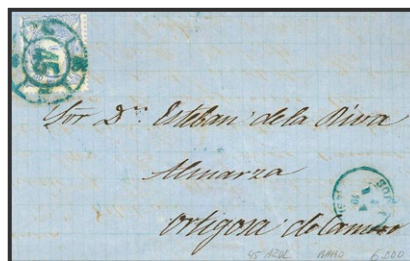 Sor Dn Esteban de la Riva
Almarza
Ortigosa de Cameros
45 AZUL RARO 6.000